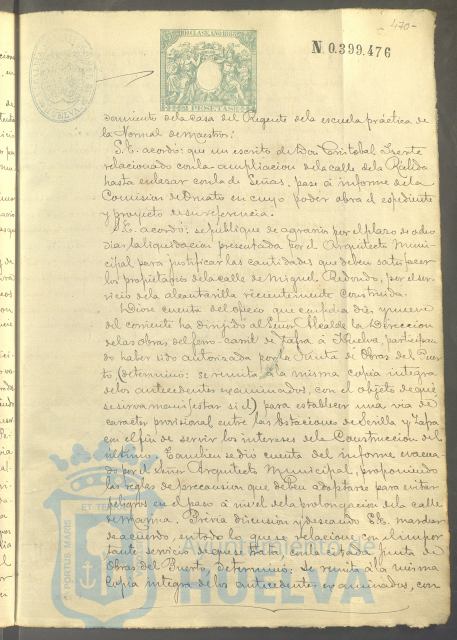 470-
10ª CLASE AÑO 1885
2 PESETAS
N. 0.399.476
damiento de la casa del Regente de la escuela práctica de
la Normal de Maestros.
S.E. acordó: que un escrito de Don Cristobal
relacionado con la ampliacion de la calle de la Rábida
hasta enlazar con la de Señas, pase á informe de la
Comision de Ornato en cuyo poder obra el espediente
y proyecto de su referencia.
S.E. acordó: se publique de agravios por el plazo de ocho
dias la liquidacion presentada por el Arquitecto Muni-
cipal para justificar las cantidades que deben satisfacer
los propietarios de la calle de Miguel Redondo, por el ser-
vicio de la alcantarilla recientemente construida.
Dióse cuenta del oficio que con fecha diez y nueve
del corriente ha dirijido al Señor Alcalde la Direccion
de las obras del ferro-carril de Zafra á Huelva, participan-
do haber sido autorizada por la Junta de Obras del Puer-
to (determinó: se remita á la misma copia integra
de los antecedentes examinados, con el objeto de que
se sirva manifestar si el) para establecer una via de
caracter provisional entre las Estaciones de Sevilla y Zafra
con el fin de servir los intereses de la Construccion del
último. Tambien se dió cuenta del informe evacua-
do por el Señor Arquitecto Municipal, proponiendo
las reglas de precaucion que deben adoptarse para evitar
peligros en el paso á nivel de la prolongacion de la calle
de Marina. Prévia discusion y deseando S.E. marchar
de acuerdo en todo lo que se relacione con el impor-
tante servicio de que se trata, con la citada Junta de
Obras del Puerto, determinó: se remita á la misma
copia integra de los antecedentes examinados, con
PORTUS MARIS ET TERRÆ
Ayuntamiento de
HUELVA